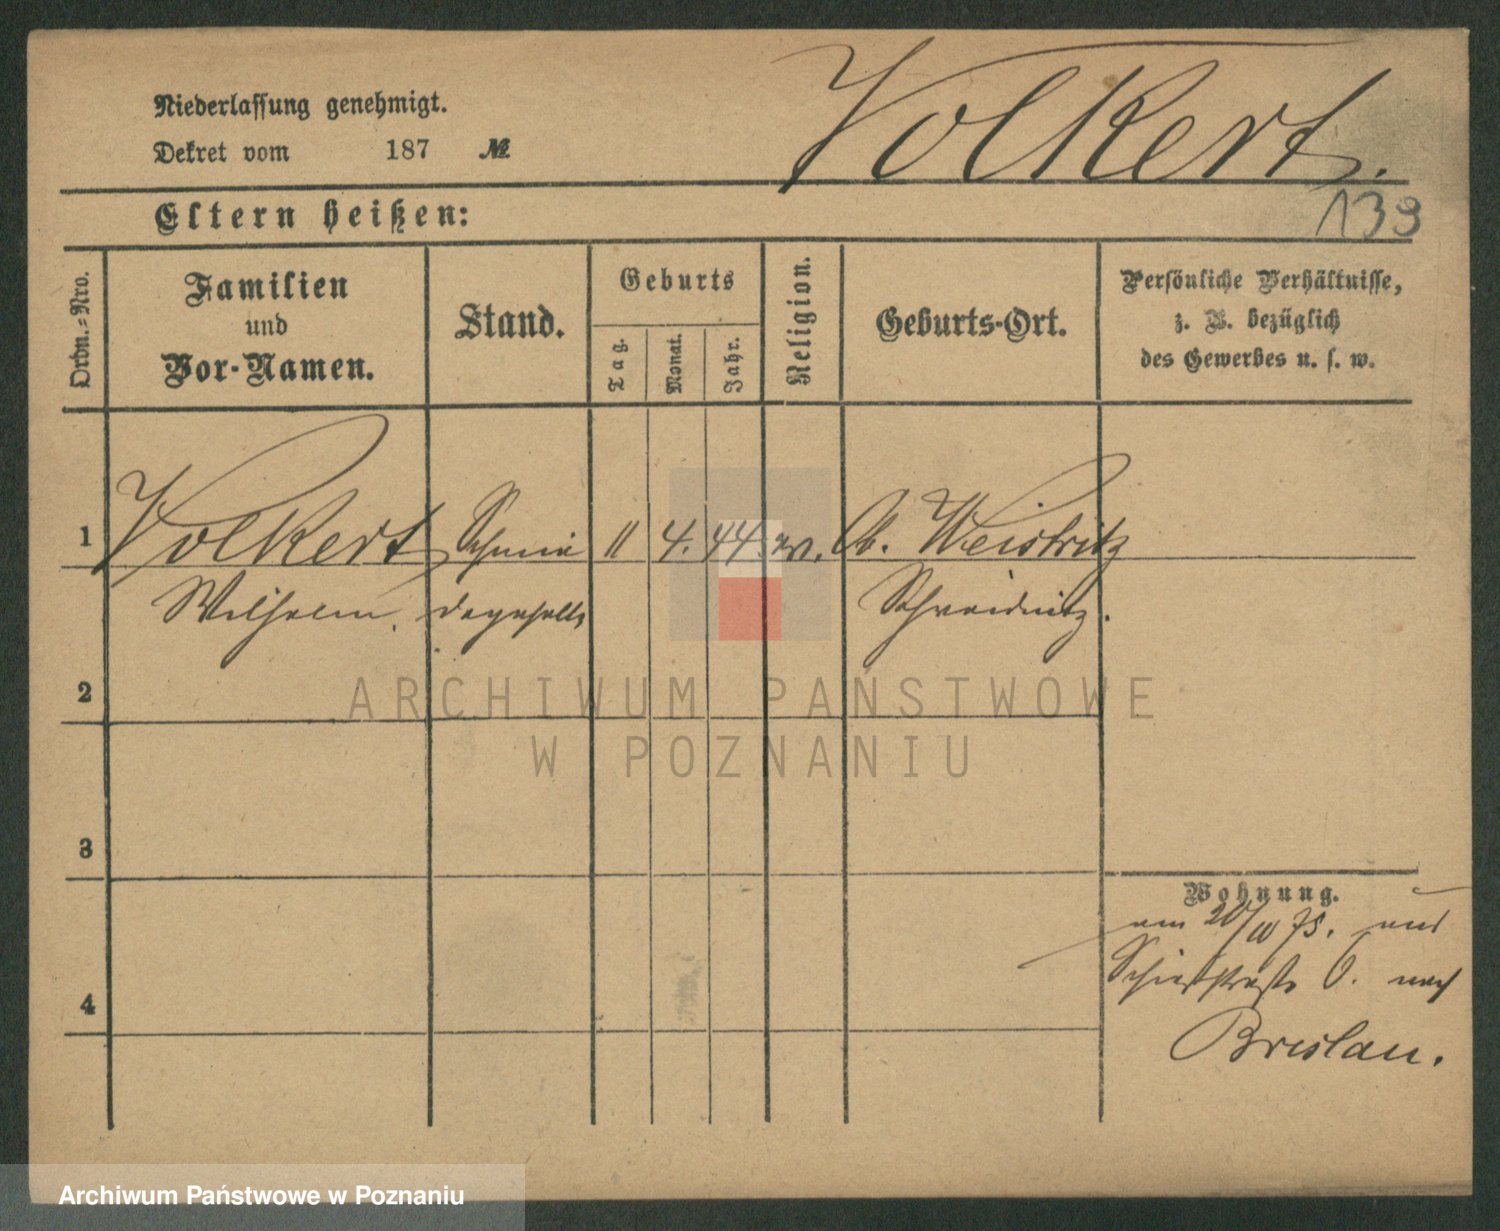 Niederlassung genehmigt.
Dekret vom 187 №
Volkert.
139
Eltern heißen:
Ordn.-Nro.
Familien
und
Vor-Namen.
Stand.
Geburts
Tag.
Monat.
Jahr.
Religion.
Geburts-Ort.
Persönliche Verhältnisse,
z. B. bezüglich
des Gewerbes u. s. w.
1 Volkert Schmie 11 4. 44. ev. Ob. Weistritz
Wilhelm. degeselle Schweidnitz.
2
3
4
Wohnung.
am 20/10 75. aus
6. nach
Breslau.
ARCHIWUM PAŃSTWOWE
W POZNANIU
Archiwum Państwowe w Poznaniu